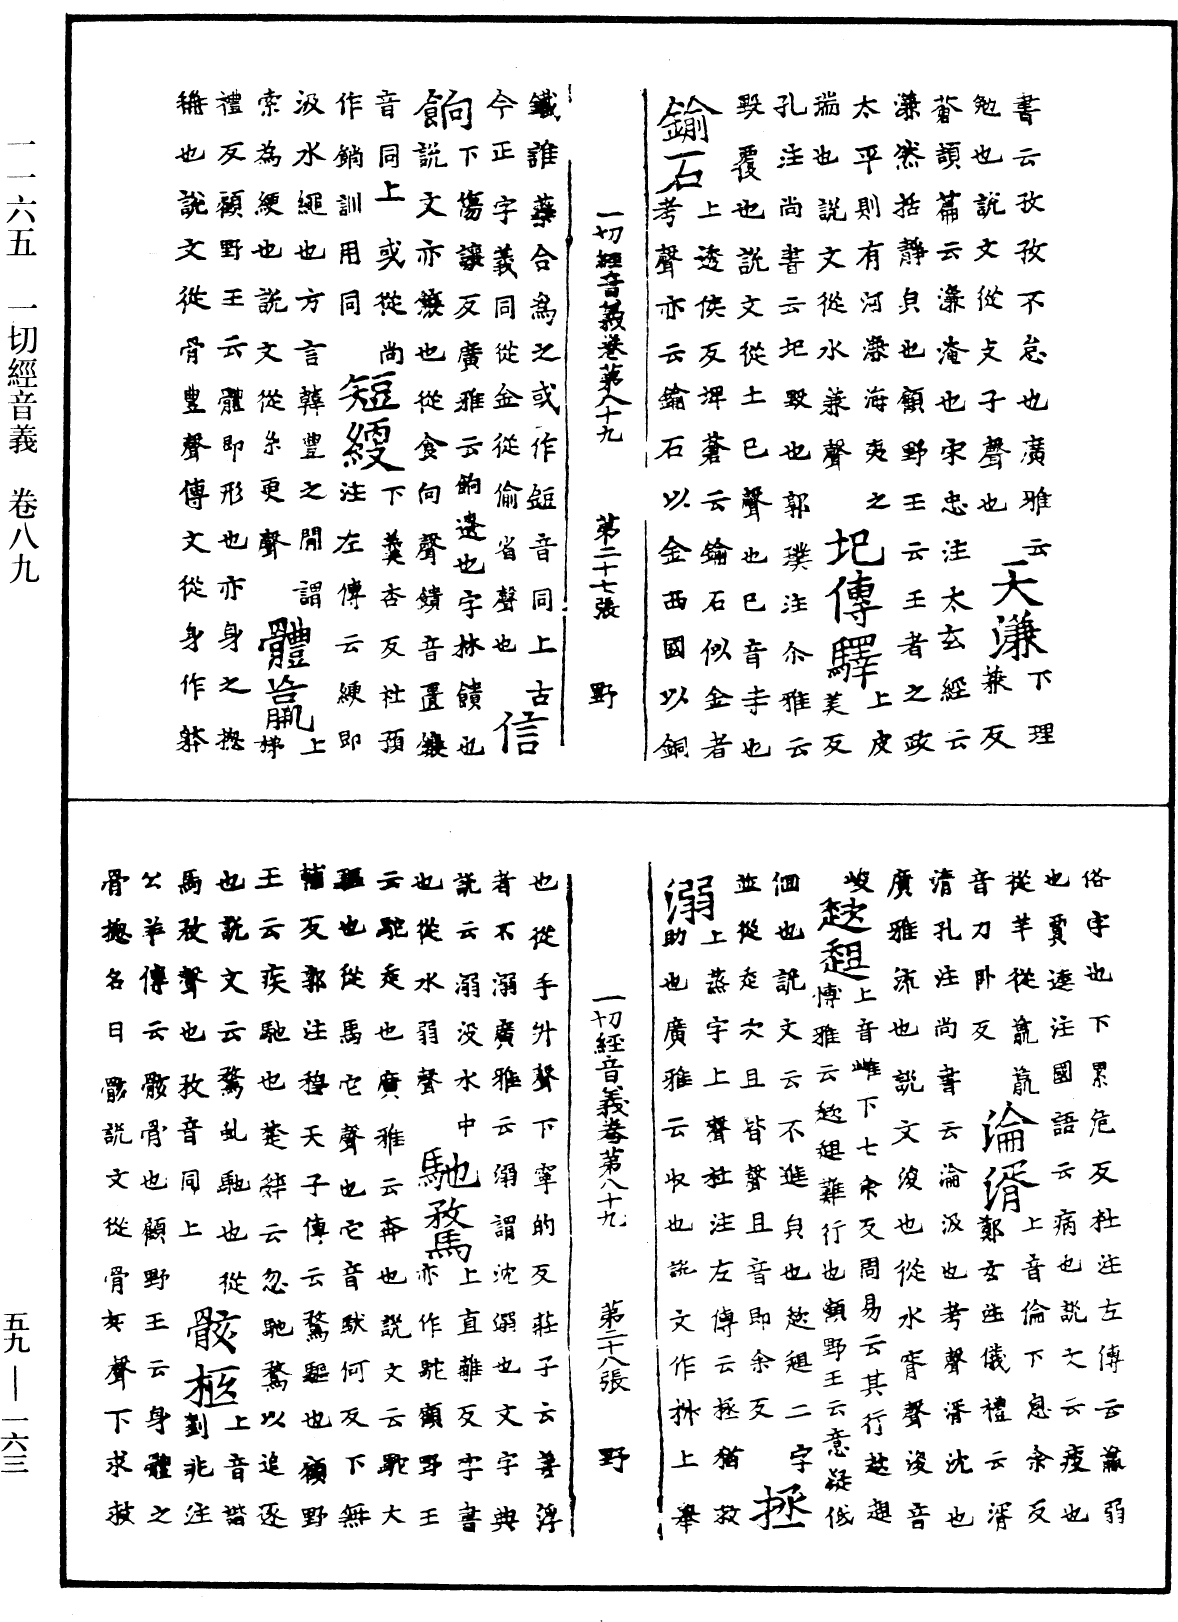 一一六五　一切經音義　卷八九
五九—一六三
書云孜孜不怠也廣雅云
勉也說文從攴子聲也　天溓下
蒼頡篇云溓淹也宋忠注太玄經云
溓然恬靜皃也顧野王云王者之政
太平則有河溓海夷之
瑞也說文從水兼聲　圯傳驛上皮美反
孔注尚書云圯毀也郭璞注尒雅云
毀覆也說文從土巳聲也巳音寺也
鍮石上透侯反埤蒼云鍮石似金者
考聲亦云鍮石以金西國以銅
一切經音義卷第八十九　第二十七張　野
鐵誰藥合爲之或作鋀音同上古
今正字義同從金從偷省聲也　信
餉下傷讓反廣雅云餉遺也字林饋也
說文亦饟也從食向聲饋音匱饟
音同上或從尚
作䬕訓用同　短綆下羹杏反杜預
注左傳云綆即
汲水繩也方言韓豊之閒謂
索為綆也說文從糸更聲　體羸上梯
禮反顧野王云體即形也亦身之揔
稱也說文從骨豊聲傳文從身作躰
俗字也下累危反杜注左傳云羸弱
也賈逵注國語云病也說文云瘦也
從羊從𣎆𣎆
音刀卧反　淪湑上音倫下息余反
鄭玄注儀禮云湑
清孔注尚書云淪汲也考聲湑沈也
廣雅流也說文沒也從水胥聲沒音
峧　趑趄上音雌下七余反周易云其行趑趄
博雅云趑趄難行也顧野王云意疑低
佪也說文云不進皃也趑趄二字
並從走次且皆聲且音即余反　拯
溺上蒸字上聲杜注左傳云拯猶救
助也廣雅云收也說文作抍上舉
一切經音義卷第八十九　第二十八張　野
也從手升聲下寧的反莊子云善浮
者不溺廣雅云溺謂沈溺也文字典
說云溺沒水中
也從水弱聲　馳孜馬上直離反字書
亦作駞顧野王
云駞走也廣雅云奔也說文云駞大
驅也從馬它聲也它音馱何反下無
輔反郭注穆天子傳云騖驅也顧野
王云疾馳也楚辭云忽馳騖以追逐
也說文云騖亂馳也從
馬孜聲也孜音同上　骸柩上音諧
劉兆注
公羊傳云骸骨也顧野王云身體之
骨揔名曰骸說文從骨亥聲下求救